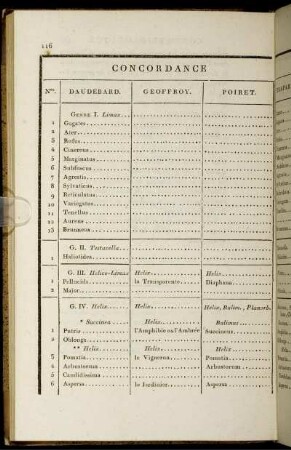 116
CONCORDANCE
Nos. DAUDEBARD. GEOFFROY. POIRET.
Genre I. Limax
1 Gagates
2 Ater
3 Rufus
4 Cinereus
5 Marginatus
6 Subfuscus
7 Agrestis
8 Sylvaticus
9 Reticulatus
10 Variegatus
11 Tenellus
12 Aureus
13 Brunneus
G. II. Testacella
1 Haliotidea
G. III. Helico-Limax Helix Helix
1 Pellucida la Transparente Diaphana
2 Major
G. IV. Helix Helix Helix, Bulim., Planorb.
* Succinea Helix Bulimus
1 Putris l'Amphibie ou l'Ambrée Succineus
2 Oblonga
** Helix Helix Helix
3 Pomatia le Vigneron Pomatia
4 Arbustorum Arbustorum
5 Candidissima
6 Aspersa le Jardinier Aspersa